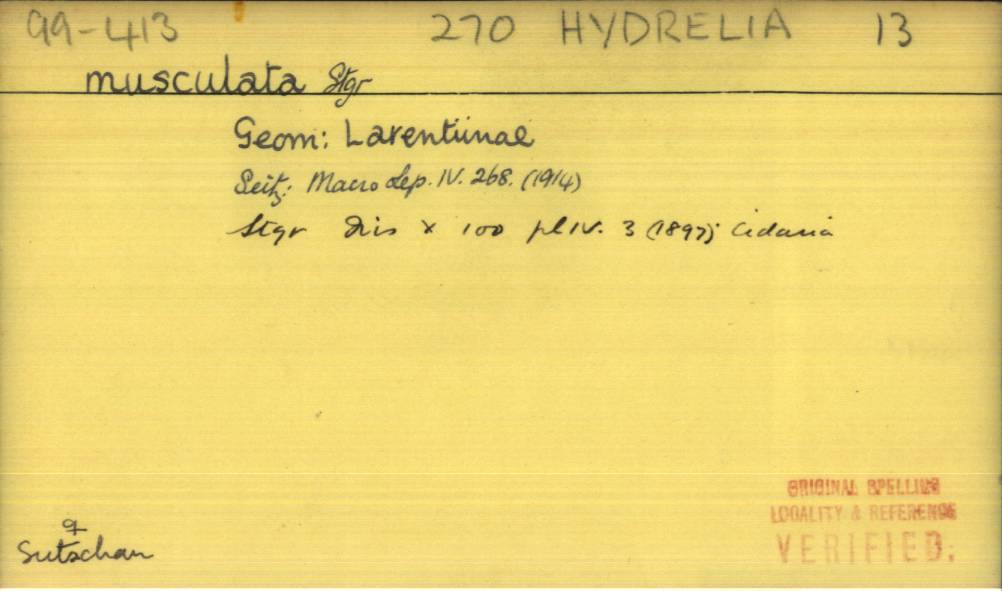 99-413 270 HYDRELIA 13
musculata Stgr
Geom: Larentiinae
Seitz: Macro Lep. IV. 268. (1914)
Stgr Iris X 100 pl IV. 3 (1897) Cidaria
ORIGINAL SPELLING
LOCALITY & REFERENCE
VERIFIED.
Sutschan